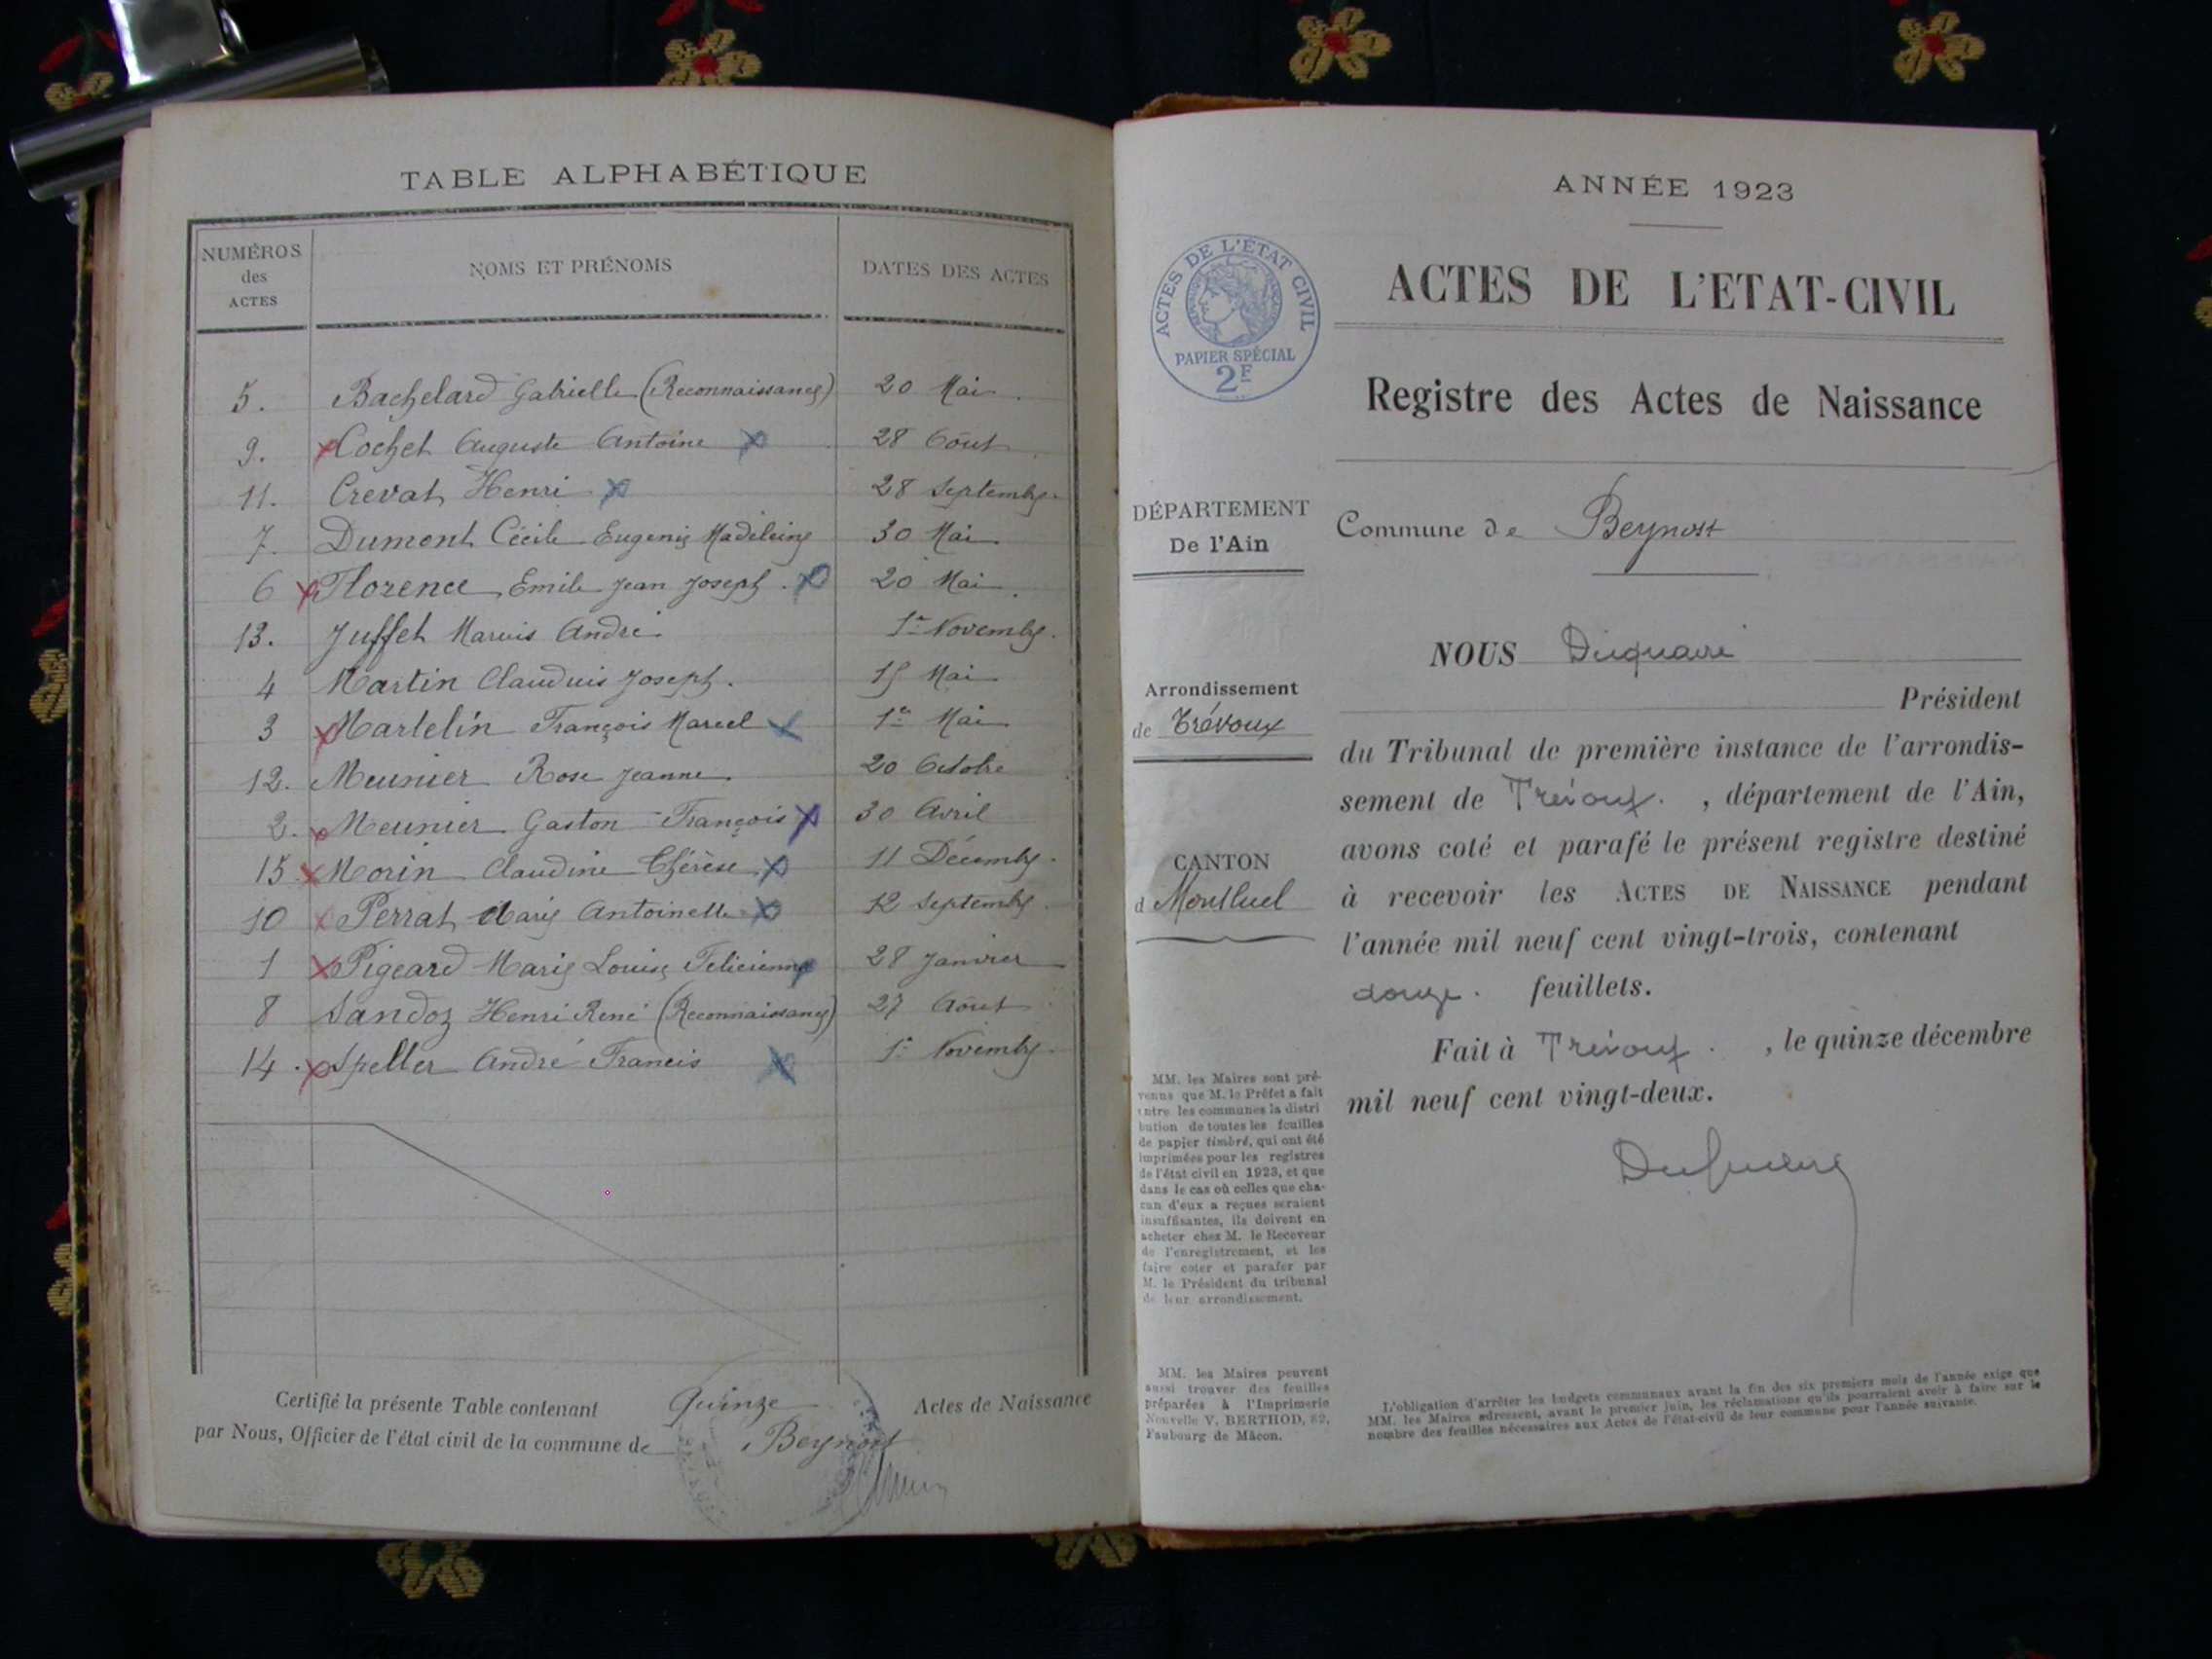 TABLE ALPHABÉTIQUE
NUMÉROS des ACTES
NOMS ET PRÉNOMS
DATES DES ACTES
5. Bachelard Gabrielle (Reconnaissance) 20 Mai
9. Cochet Auguste Antoine 28 Août
11. Crevat Henri 28 Septembre
7. Dumont Cécile Eugenie Madeleine 30 Mai
6 Florence Emile Jean Joseph 20 Mai
13. Juffet Marius André 1er Novembre
4 Martin Claudius Joseph 15 Mai
3 Martelin François Marcel 1er Mai
12. Meunier Rose Jeanne 20 Octobre
2. Meunier Gaston François 30 Avril
15 Morin Claudine Thérèse 11 Décembre
10 Perrat Marie Antoinette 12 Septembre
1 Pigeard Marie Louise Felicienne 28 Janvier
8 Sandoz Henri René (Reconnaissance) 27 Août
14. Speller André Francis 1er Novembre
Certifié la présente Table contenant Quinze Actes de Naissance
par Nous, Officier de l'état civil de la commune de Beynost
ANNÉE 1923
ACTES DE L'ÉTAT CIVIL
PAPIER SPÉCIAL
2F
ACTES DE L'ETAT-CIVIL
Registre des Actes de Naissance
DÉPARTEMENT
De l'Ain
Commune de Beynost
Arrondissement
de Trévoux
CANTON
d Montluel
NOUS Duquaire
Président
du Tribunal de première instance de l'arrondis-
sement de Trévoux. , département de l'Ain,
avons coté et parafé le présent registre destiné
à recevoir les ACTES DE NAISSANCE pendant
l'année mil neuf cent vingt-trois, contenant
douze. feuillets.
Fait à Trévoux. , le quinze décembre
mil neuf cent vingt-deux.
MM. les Maires sont pré-
venus que M. le Préfet a fait
entre les communes la distri
bution de toutes les feuilles
de papier timbré, qui ont été
imprimées pour les registres
de l'état civil en 1923, et que
dans le cas où celles que cha-
cun d'eux a reçues seraient
insuffisantes, ils doivent en
acheter chez M. le Receveur
de l'enregistrement, et les
faire coter et parafer par
M. le Président du tribunal
de leur arrondissement.
MM. les Maires peuvent
aussi trouver des feuilles
préparées à l'Imprimerie
Nouvelle V. BERTHOD, 82,
Faubourg de Mâcon.
L'obligation d'arrêter les budgets communaux avant la fin des six premiers mois de l'année exige que
MM. les Maires adressent, avant le premier juin, les réclamations qu'ils pourraient avoir à faire sur le
nombre des feuilles nécessaires aux Actes de l'état-civil de leur commune pour l'année suivante.